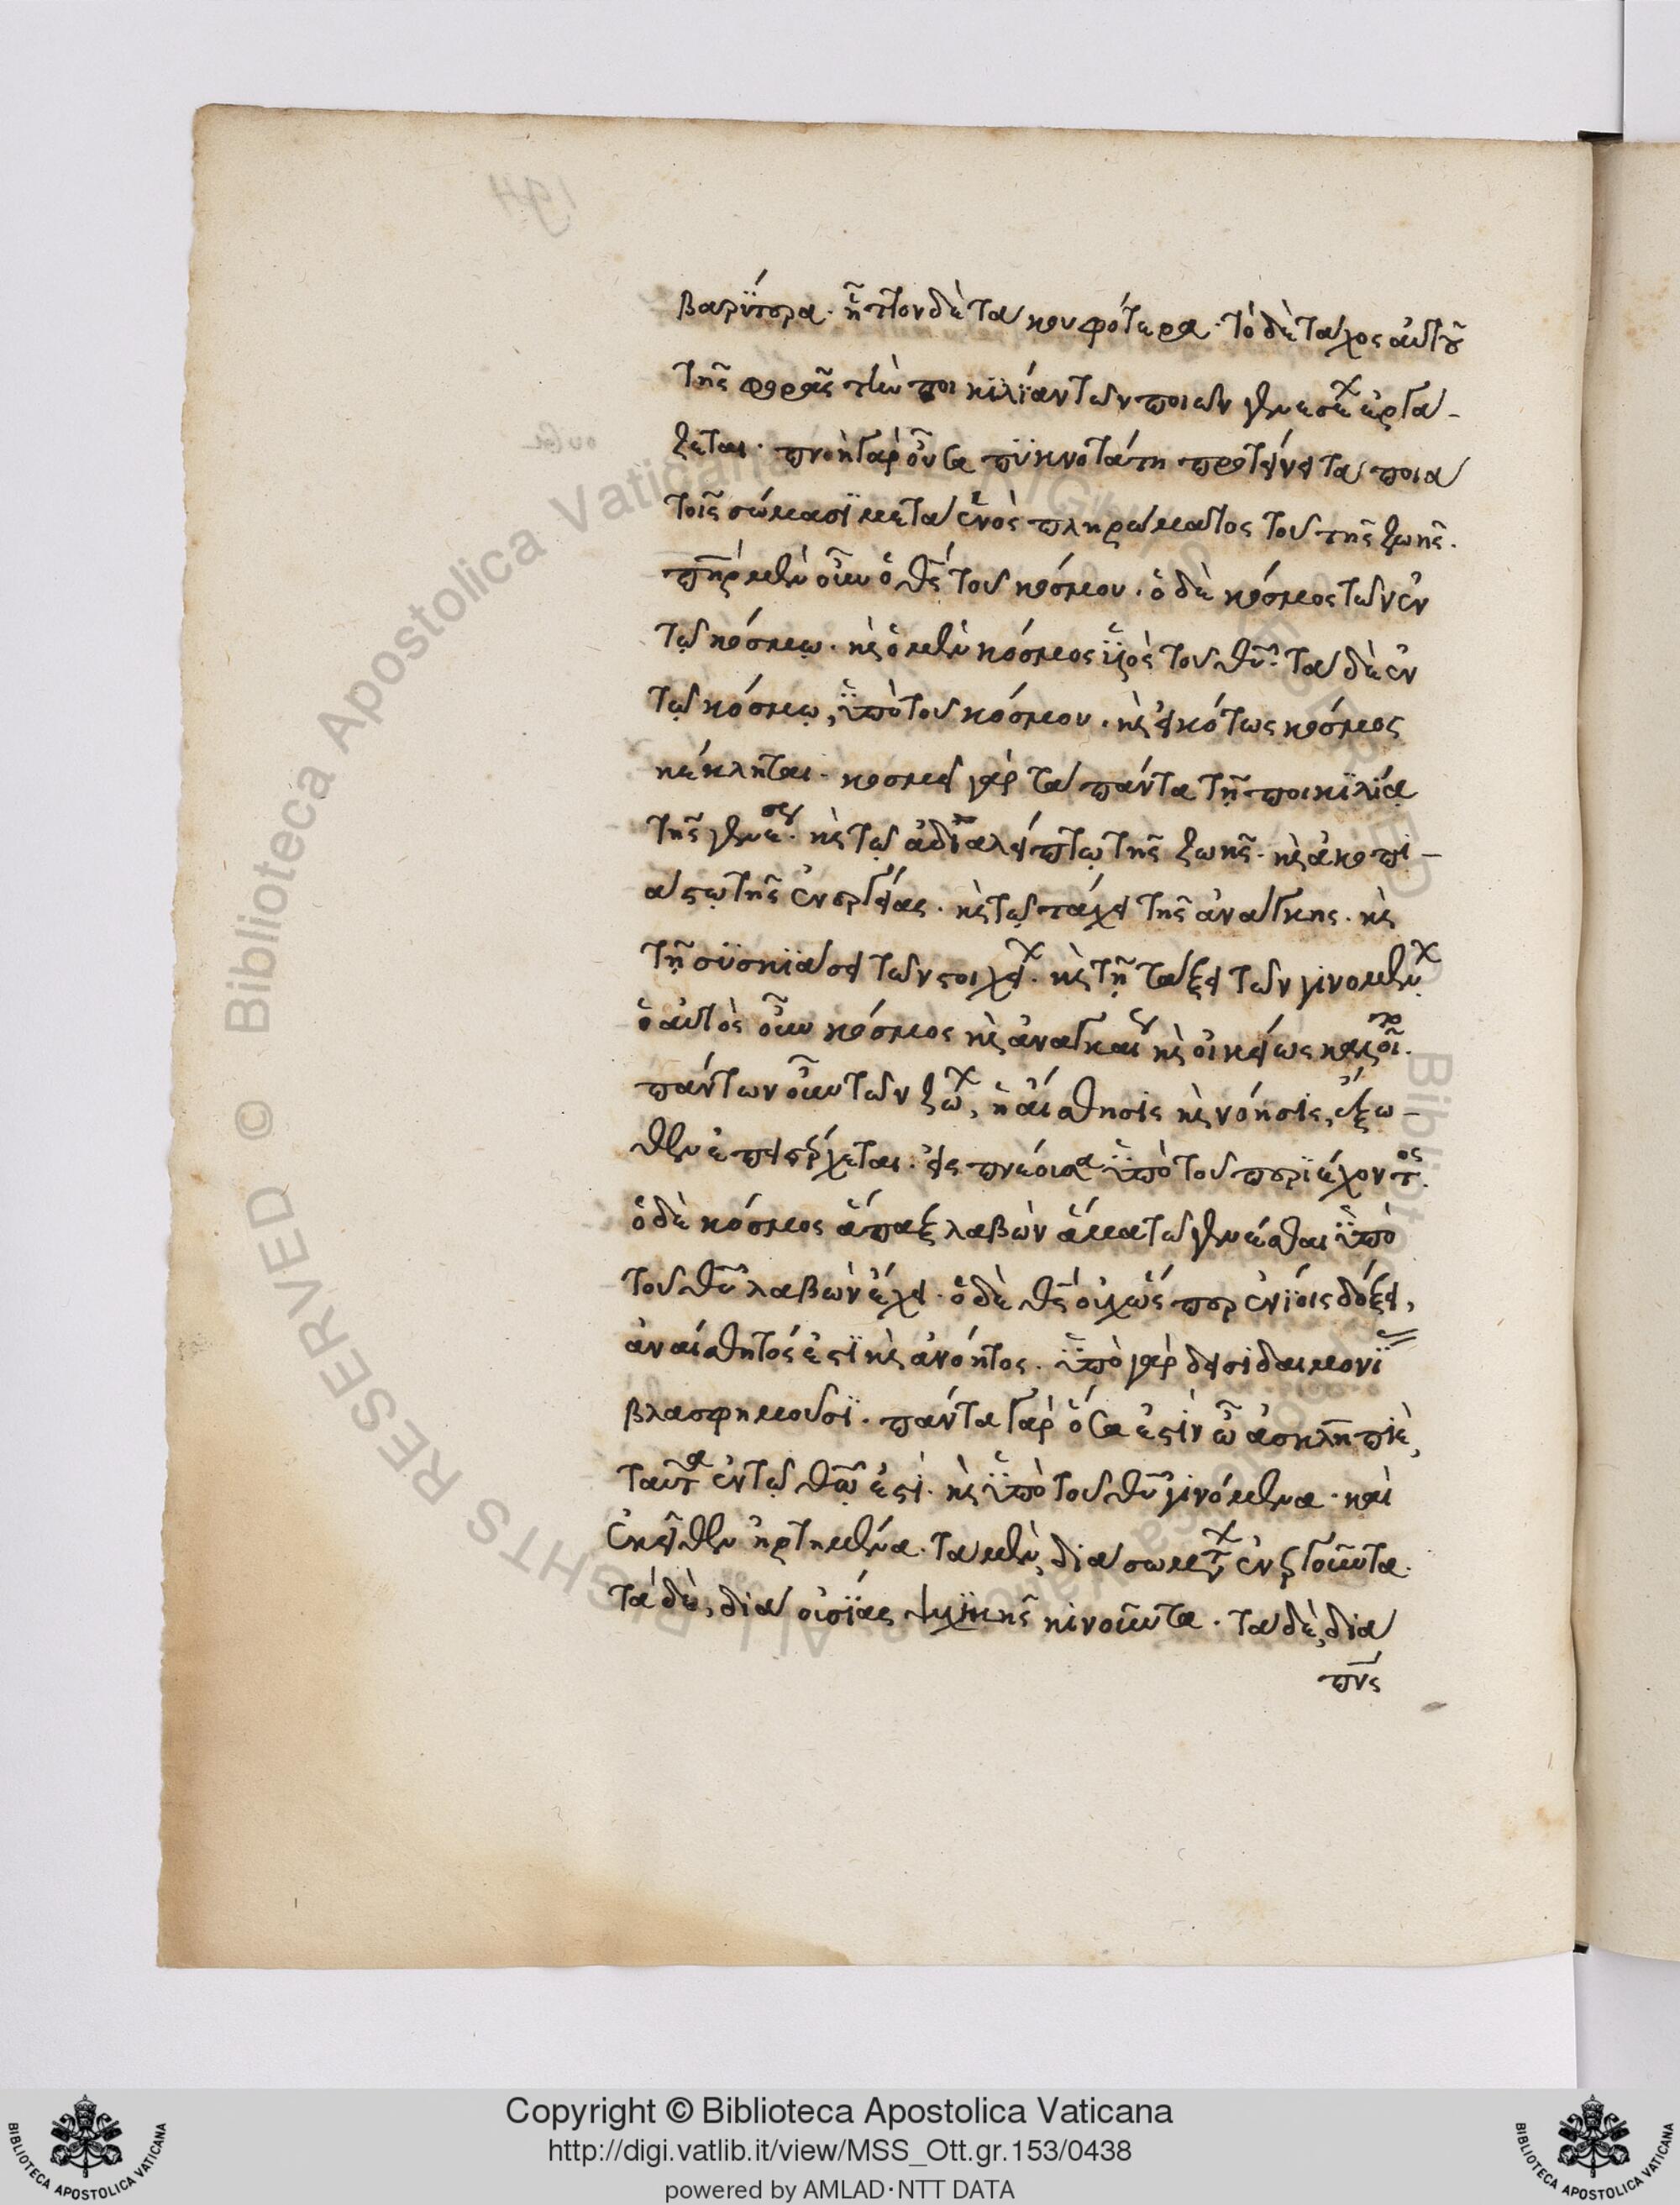 βαρύτερα· ἧττον δὲ τὰ κουφότερα· τὸ δὲ τάχος αὐτοῦ
τῆς φορᾶς τὴν ποικιλίαν τῶν ποιῶν γενεσέων ἐργά-
ζεται· πνοὴ γὰρ οὖσα πυκνοτάτη προτείνει τὰ ποιὰ
τοῖς σώμασι μετὰ ἑνὸς πληρώματος τοῦ τῆς ζωῆς.
πηρ μὲν οὖν ὁ θς τοῦ κόσμου· ὁ δὲ κόσμος τῶν ἐν
τῷ κόσμῳ· κὶ ὁ μὲν κόσμος ὑὸς τοῦ θυ· τὰ δὲ ἐν
τῷ κόσμῳ, ὑπὸ τοῦ κόσμου· κὶ εἰκότως κόσμος
κέκληται· κοσμεῖ γὰρ τὰ πάντα τῇ ποικιλίᾳ
τῆς γενέσε· κὶ τῷ ἀδιαλείπτῳ τῆς ζωῆς· κὶ ἀκοπι-
άστῳ τῆς ἐνεργείας· κὶ τῷ τάχει τῆς ἀνάγκης· κὶ
τῇ συσκιάσει τῶν στοιχεί· κὶ τῇ τάξει τῶν γινομέν
ὁ αὐτὸς οὖν κόσμος κὶ ἀναγκαί κὶ οἰκείως καλοῖτο.
πάντων οὖν τῶν ζώ, ἡ αἴσθησις κὶ νόησις, ἔξω-
θεν ἐπεισέρχεται· εἰσπνέουσα ὑπὸ τοῦ περιέχοντος.
ὁ δὲ κόσμος ἅπαξ λαβὼν ἅμα τῷ γενέσθαι ὑπὸ
τοῦ θυ λαβὼν ἔχει· ὁ δὲ θς οὐχ ὥσπερ ἐνίοις δόξει,
ἀναίσθητός ἐστι κὶ ἀνόητος· ὑπὸ γὰρ δεισιδαιμονί
βλασφημοῦσι· πάντα γὰρ ὅσα ἐστὶν ὦ ἀσκληπιὲ,
ταῦτα ἐν τῷ θῷ ἐστί· κὶ ὑπὸ τοῦ θυ γινόμενα· καὶ
ἐκεῖθεν ἠρτημένα· τὰ μὲν, διὰ σωμάτ ἐνεργοῦντα·
τὰ δὲ, διὰ οὐσίας ψυχικῆς κινοῦντα· τὰ δὲ, διὰ
πνς
Copyright © Biblioteca Apostolica Vaticana
http://digi.vatlib.it/view/MSS_Ott.gr.153/0438
powered by AMLAD·NTT DATA
BIBLIOTECA APOSTOLICA VATICANA
BIBLIOTECA APOSTOLICA VATICANA